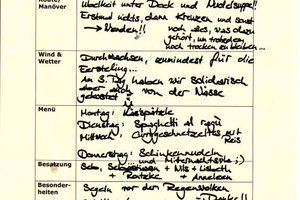 Route/
Manöver
Übelkeit unter Deck und Nudelsuppe!!
Erstmal nichts, dann Kreuzen und sonst
noch alles, was dazu
→ Wenden!!
gehört, um trotzdem
noch trocken zu bleiben...
Wind &
Wetter
Durchwachsen, zumindest für die
Am 3. Tag haben wir solidarisch
von der Nässe
gekostet
Menü
Montag: Kässpätzle
Dienstag: Spaghetti al ragù
Mittwoch: Gurgeschnetzeltes mit
Reis
Donnerstag: Schinkennudeln
und Mitternachts
Besatzung
+ Nils + Lisbeth
+ Anneleen
Besonder-
heiten
Segeln vor den Regenwolken
Danke!!